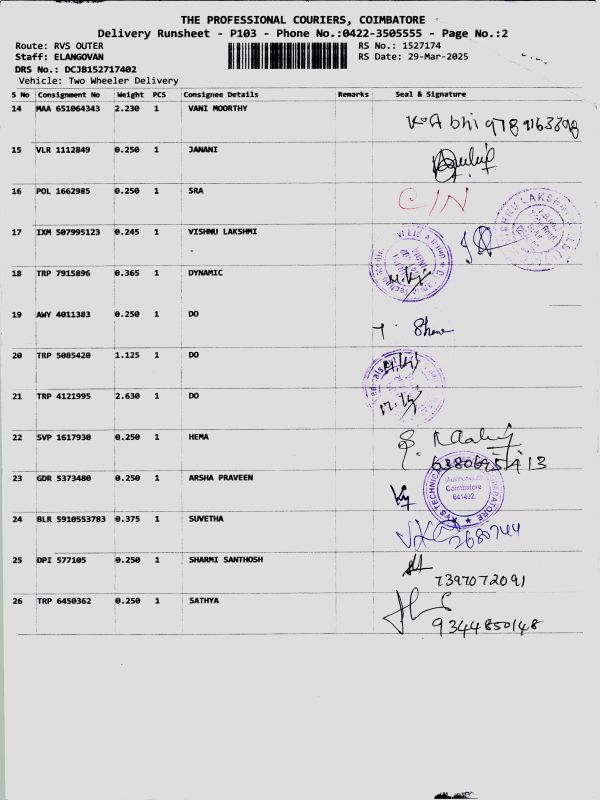 THE PROFESSIONAL COURIERS, COIMBATORE
Delivery Runsheet - P103 - Phone No.:0422-3505555 - Page No.:2
Route: RVS OUTER RS No.: 1527174
Staff: ELANGOVAN RS Date: 29-Mar-2025
DRS No.: DCJB152717402
Vehicle: Two Wheeler Delivery
S No Consignment No Weight PCS Consignee Details Remarks Seal & Signature
14 MAA 651064343 2.230 1 VANI MOORTHY
15 VLR 1112849 0.250 1 JANANI
16 POL 1662985 0.250 1 SRA C/N
17 IXM 507995123 0.245 1 VISHNU LAKSHMI
-
18 TRP 7915896 0.365 1 DYNAMIC
19 AWY 4011383 0.250 1 DO
20 TRP 5085420 1.125 1 DO
21 TRP 4121995 2.630 1 DO
22 SVP 1617930 0.250 1 HEMA
23 GDR 5373480 0.250 1 ARSHA PRAVEEN
Coimbatore
641402.
24 BLR 5910553783 0.375 1 SUVETHA
25 DPI 577105 0.250 1 SHARMI SANTHOSH
7397072091
26 TRP 6450362 0.250 1 SATHYA
9344850148